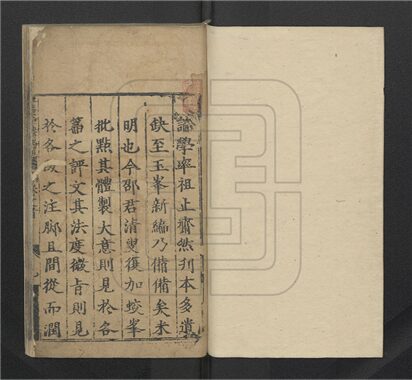 論學率祖止齋然刋本多遺
缺至玉峯新編乃備備矣未
明也今邵君清叟復加蛟峯
批點其體製大意則見於各
篇之評文其法度微旨則見
於各段之注脚且間從而潤